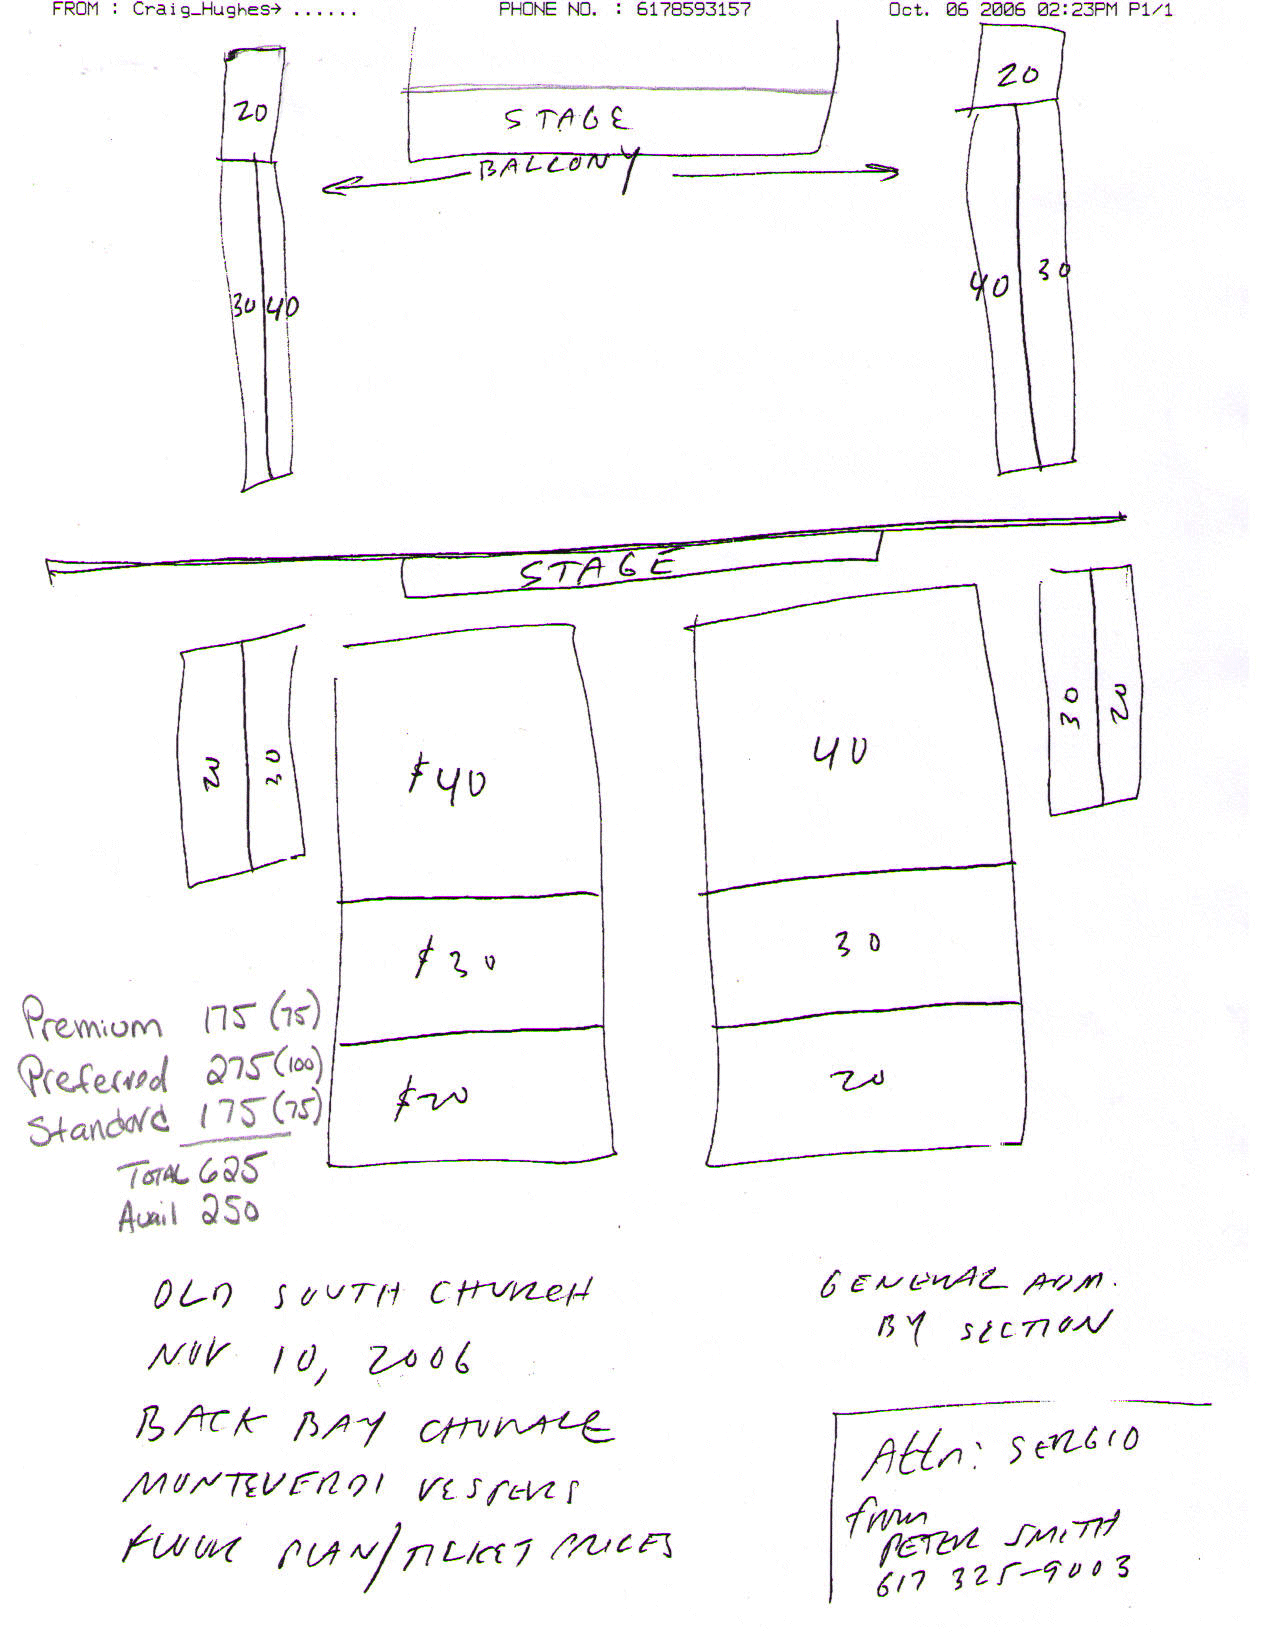 FROM : Craig_Hughes→ ...... PHONE NO. : 6178593157 Oct. 06 2006 02:23PM P1/1
20
20
STAGE
BALCONY
30 40
40 30
STAGE
20 30
30 20
$40
40
$30
30
$20
20
Premium 175 (75)
Preferred 275 (100)
Standard 175 (75)
TOTAL 625
Avail 250
OLD SOUTH CHURCH
NOV 10, 2006
BACK BAY CHORALE
MONTEVERDI VESPERS
FLOOR PLAN/TICKET PRICES
GENERAL ADM.
BY SECTION
Attn: SERGIO
from
PETER SMITH
617 325-9003